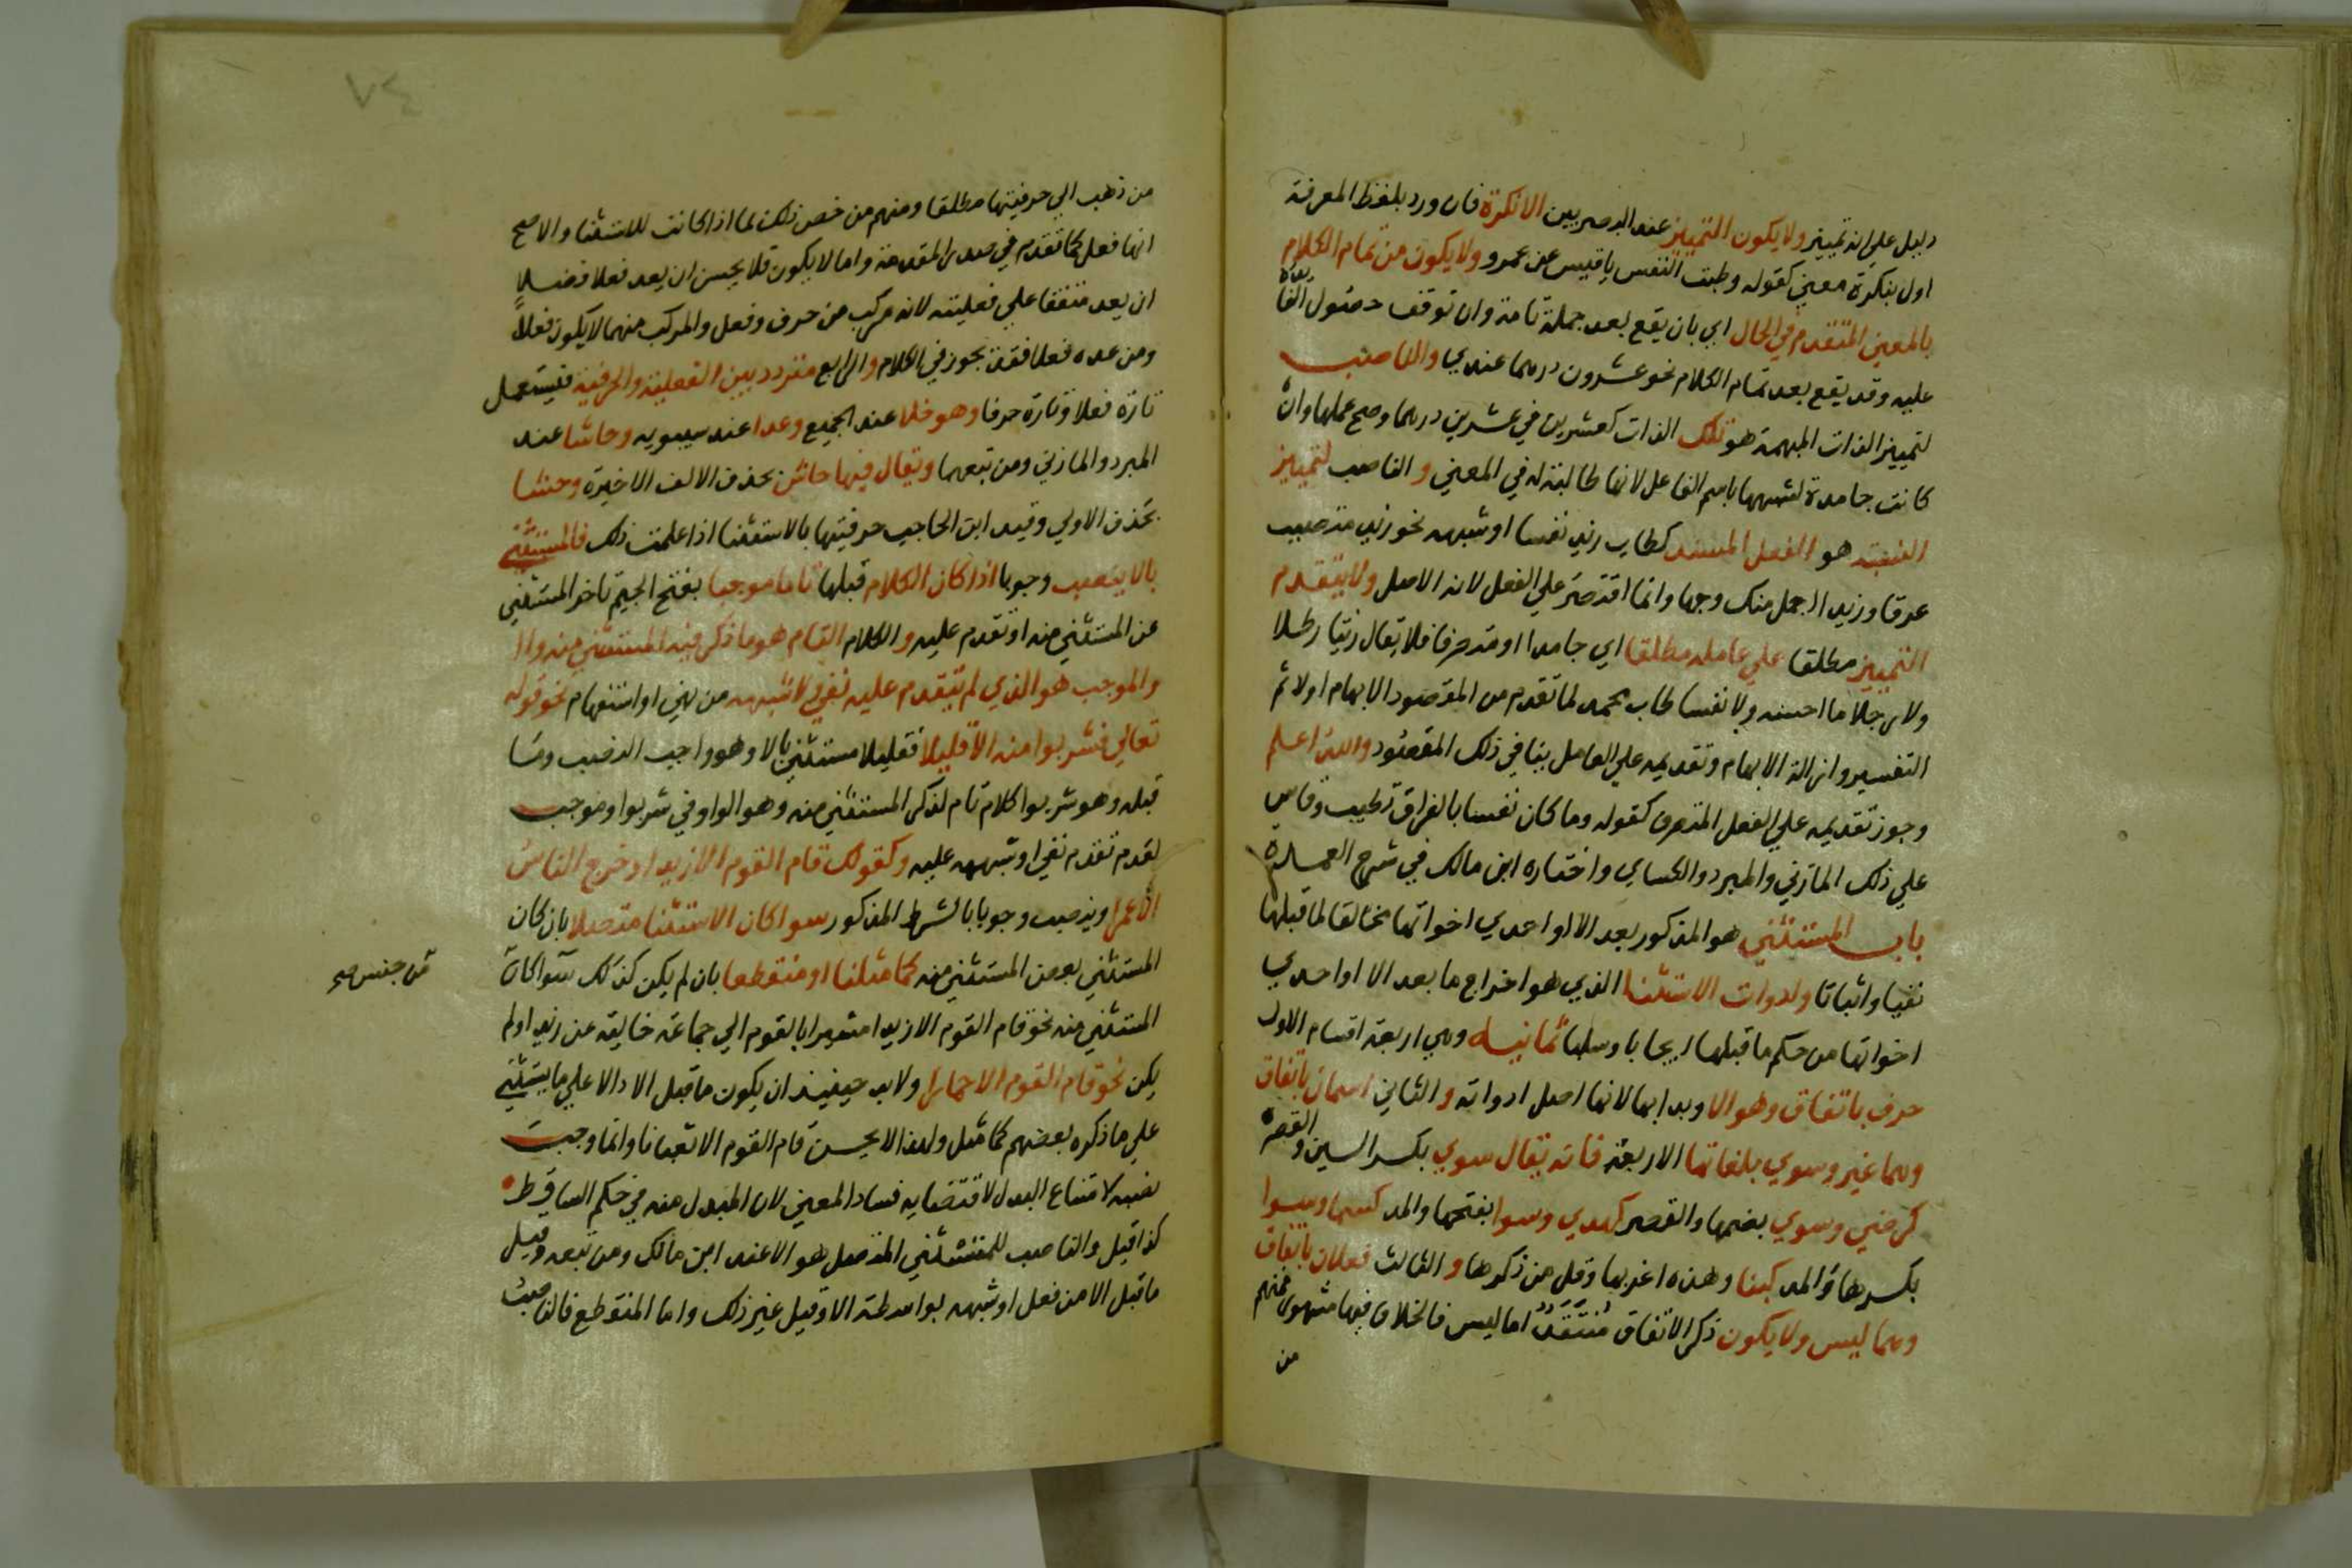 دليل علي انه تمييز ولا يكون التمييز عند البصريين الا نكرة فان ورد بلفظ المعرفة
اول بنكرة معني كقوله وطبت النفس يا قيس عن عمرو ولا يكون من تمام الكلام
بالمعني المتقدم في الحال اي بان يقع بعد جملة تامة وان توقف حصول الفائدة
عليه وقد يقع بعد تمام الكلام نحو عشرون درهما عندي والناصب
لتمييز الذات المبهمة هو تلك الذات كعشرين في عشرين درهما وصح عملها وان
كانت جامدة لشبهها باسم الفاعل لانها طالبة له في المعني والناصب لتمييز
النسبة هو الفعل المسند كطاب زيد نفسا او شبهه نحو زيد متصبب
عرقا وزيد اجمل منك وجها وانما اقتصر علي الفعل لانه الاصل ولا يتقدم
التمييز مطلقا علي عامله مطلقا اي جامدا او متصرفا فلا يقال زيتا رطلا
ولا رجلا ما احسنه ولا نفسا طاب محمد لما تقدم من المقصود الابهام اولا ثم
التفسير وازالة الابهام وتقديمه علي العامل ينافي ذلك المقصود والله اعلم
وجوز تقديمه علي الفعل المتصرف كقوله وما كان نفسا بالفراق تطيب وقاس
علي ذلك المازني والمبرد والكساي واختاره ابن مالك في شرح العمدة
باب المستثني هو المذكور بعد الا او احدي اخواتها مخالفا لما قبلها
نفيا واثباتا ولدوات الاستثنا الذي هو اخراج ما بعد الا او احدي
اخواتها من حكم ما قبلها ايجابا وسلبا ثمانية وهي اربعة اقسام الاول
حرف باتفاق وهو الا وبدا بها لانها اصل ادواته والثاني اسمان باتفاق
وهما غير وسوي بلغاتها الاربعة فانه يقال سوي بكسر السين والقصر
كرضي وسوي بضمها والقصر كهدي وسوا بفتحها والمد كسما وسوا
بكسرها والمد كبنا وهذه اغربها وقل من ذكرها والثالث فعلان باتفاق
وهما ليس ولا يكون ذكر الاتفاق منتقد اما ليس فالخلاف فيها مشهور فمنهم
من
٧٤
من ذهب الي حرفيتها مطلقا ومنهم من خص ذلك لما اذا كانت للاستثنا والاصح
انها فعل كما تقدم في صدر المقدمة واما لا يكون فلا يحسن ان يعد فعلا فضلا
ان يعد متفقا علي فعليته لانه مركب من حرف وفعل والمركب منهما لا يكون فعلا
ومن عده فعلا فقد تجوز في الكلام والرابع متردد بين الفعلية والحرفية فيستعمل
تارة فعلا وتارة حرفا وهو خلا عند الجميع وعدا عند سيبويه وحاشا عند
المبرد والمازني ومن تبعهما ويقال فيها حاش بحذف الالف الاخيرة وحشا
بحذف الاولي وقيد ابن الحاجب حرفيتها بالاستثنا اذا علمت ذلك فالمستثني
بالا ينصب وجوبا اذا كان الكلام قبلها تاما موجبا بفتح الجيم تاخر المستثني
عن المستثني منه او تقدم عليه والكلام التام هو ما ذكر فيه المستثني منه وا
والموجب هو الذي لم يتقدم عليه نفي لا شبهه من نهي او استفهام نحو قوله
تعالي فشربوا منه الا قليلا فقليلا مستثني بالا وهو واجب النصب وما
قبله وهو شربوا كلام تام لذكر المستثني منه وهو الواو في شربوا وموجب
لعدم تقدم نفي او شبهه عليه وكقولك قام القوم الا زيدا وخرج الناس
الا عمرا وينصب وجوبا بالشرط المذكور سوا كان الاستثنا متصلا بان كان
المستثني بعض المستثني منه كما مثلنا او منقطعا بان لم يكن كذلك سوا كان
من جنس صح
المستثني منه نحو قام القوم الا زيدا مشيرا بالقوم الي جماعة خالية عن زيد او لم
يكن نحو قام القوم الا حمارا ولا بد حينئذ ان يكون ما قبل الا دالا علي ما يستثني
علي ما ذكره بعضهم كما مثل ولهذا لا يحسن قام القوم الا ثعبانا وانما وجب
نصبه لامتناع البدل لاقتضايه فساد المعني لان المبدل منه في حكم الساقط
كذا قيل والناصب للمستثني المتصل هو الا عند ابن مالك ومن تبعه وقيل
ما قبل الا من فعل او شبهه بواسطة الا وقيل غير ذلك واما المنقطع فالناصب